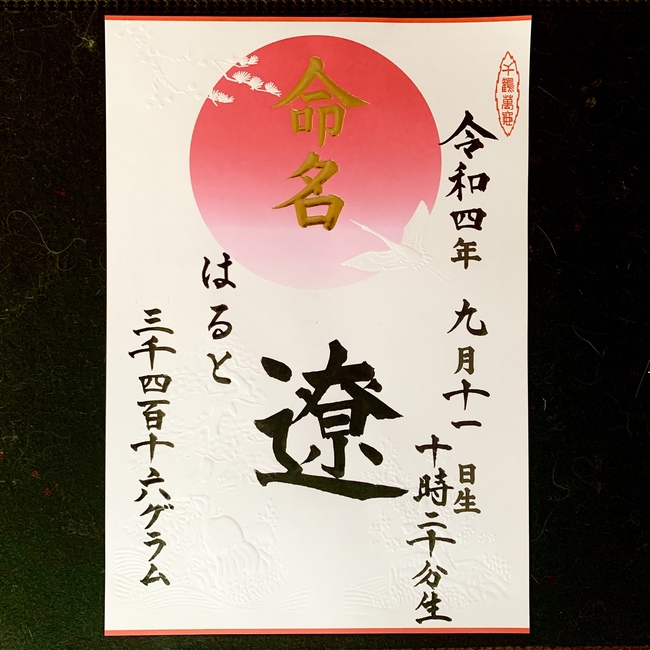 千鶴萬亀
令和四年 九月十一日生
十時二十分生
命名
遼
はると
三千四百十六グラム